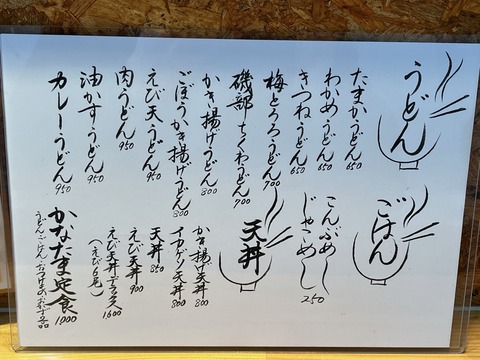 うどん
たまかうどん 650
わかめうどん 650
きつねうどん 650
梅とろろうどん 700
磯部ちくわうどん 700
かき揚げうどん 800
ごぼうかき揚げうどん 800
えび天うどん 950
肉うどん 950
油かすうどん 950
カレーうどん 950
ごはん
こんぶめし
じゃこめし 250
天丼
かき揚げ天丼 800
イカゲソ天丼 800
天丼 850
えび天丼 900
えび天丼 1600
(えび6尾)
かなたま定食 1000
うどん、ごはん